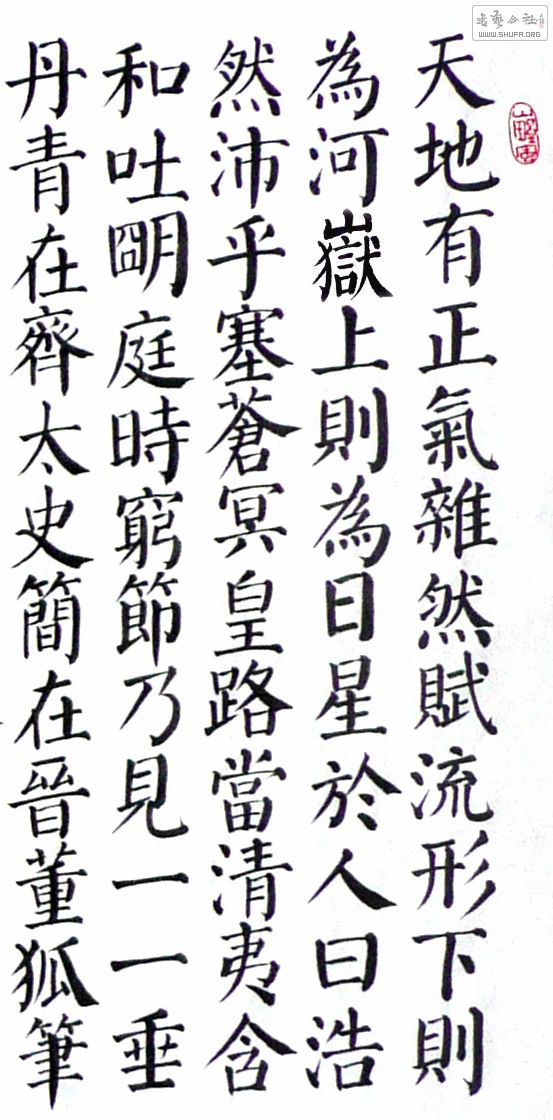 天地有正氣雜然賦流形下則
為河嶽上則為日星於人曰浩
然沛乎塞蒼冥皇路當清夷含
和吐朙庭時窮節乃見一一垂
丹青在齊太史簡在晉董狐筆
WWW.SHUFA.ORG